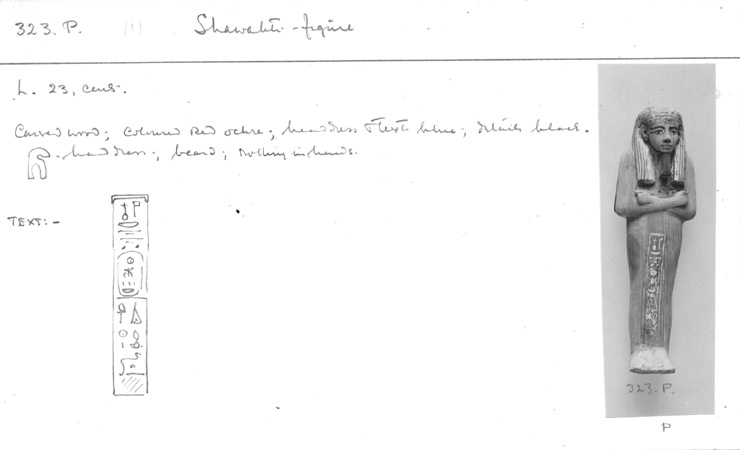 323. P. (1) Shawabti-figure
L. 23, cms.
Carved wood; coloured red ochre; headdress & text blue; details black.
-headdress; beard; nothing in hands.
TEXT:-
323.P.
P